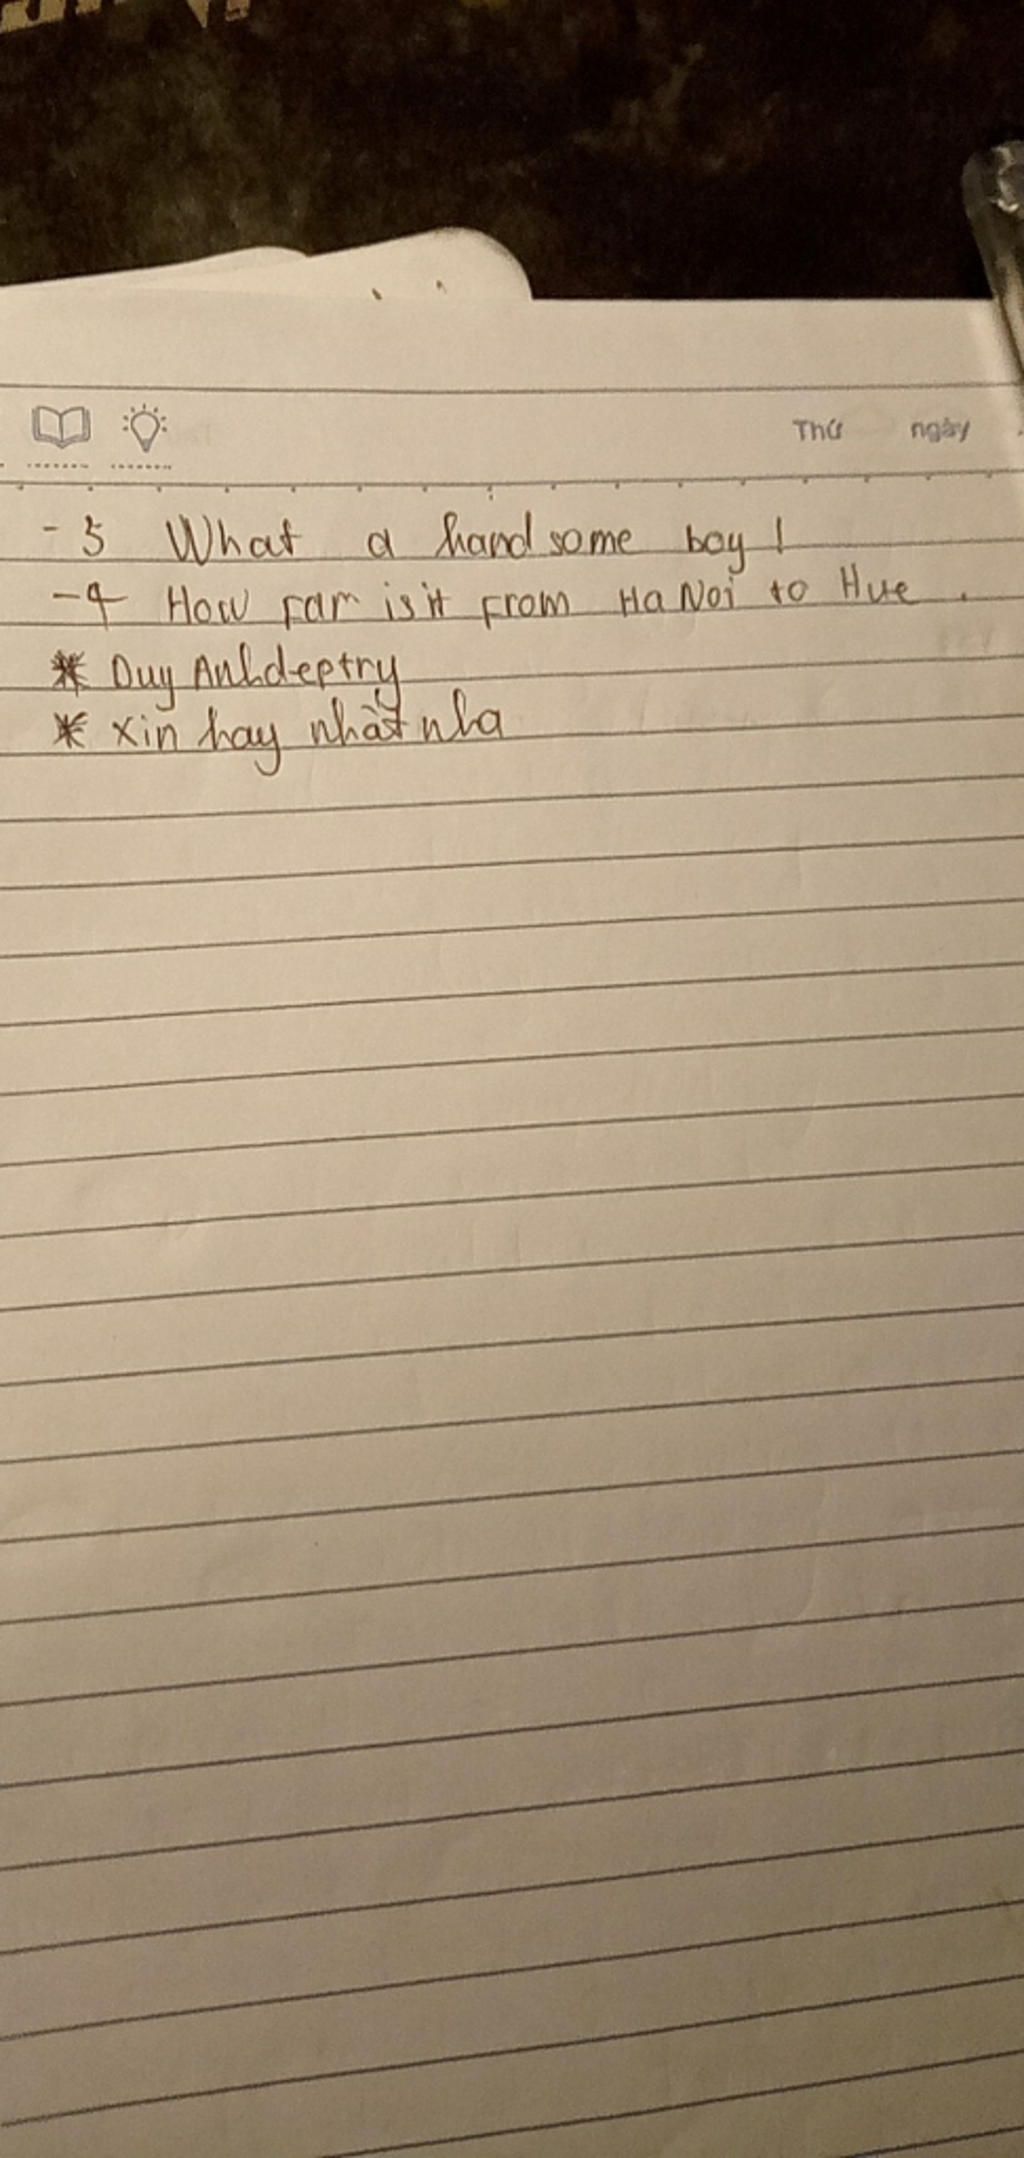 Thứ ngày
- 3 What a handsome boy!
- 4 How far is it from Ha Noi to Hue .
* Duy Anhdeptry
* xin hay nhất nha